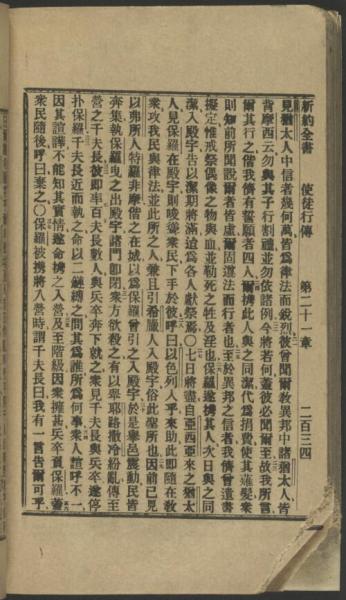 新約全書　使徒行傳　第二十一章　二百三四
見猶太人中信者幾何萬皆爲律法而銳烈彼曾聞爾敎異邦中諸猶太人皆
背摩西云勿與其子行割禮並勿依諸例今將若何蓋彼必聞爾至故我所言
爾其行之偕我儕有誓願者四人爾攜此人與之同潔代爲捐費使其薙髮衆
則知前所聞說爾者皆虛爾固遵法而行者也至於異邦之信者我儕曾遺書
擬定惟戒祭偶像之物與血並勒死之牲及淫也保羅遂攜其人次日與之同
潔入殿宇告以潔期將滿遠爲各人獻祭焉〇七日將盡自亞西亞來之猶太
人見保羅在殿宇則唆聳衆民下手於彼呼曰以色列人乎來助此卽隨在敎
衆攻我民與律法並此所之人兼且引希臘人入殿宇俗此聖所也因前已見
以弗所人特羅非摩偕之在城以爲保羅曾引之入殿宇於是舉邑震動民皆
奔集執保羅曳之出殿宇諸門卽閉衆方欲殺之有以舉耶路撒冷紛亂傳至
營之千夫長彼卽率百夫長數人與兵卒奔下就之衆見千夫長與兵卒遂停
扑保羅千夫長近而執之命以二鏈縛之問其爲誰所爲何事衆人諠呼不一
因其諠譁不能知其實情遂命攜之入營及至階級因衆擁甚兵卒負保羅蓋
衆民隨後呼曰棄之〇保羅被攜將入營時謂千夫長曰我有一言告爾可乎